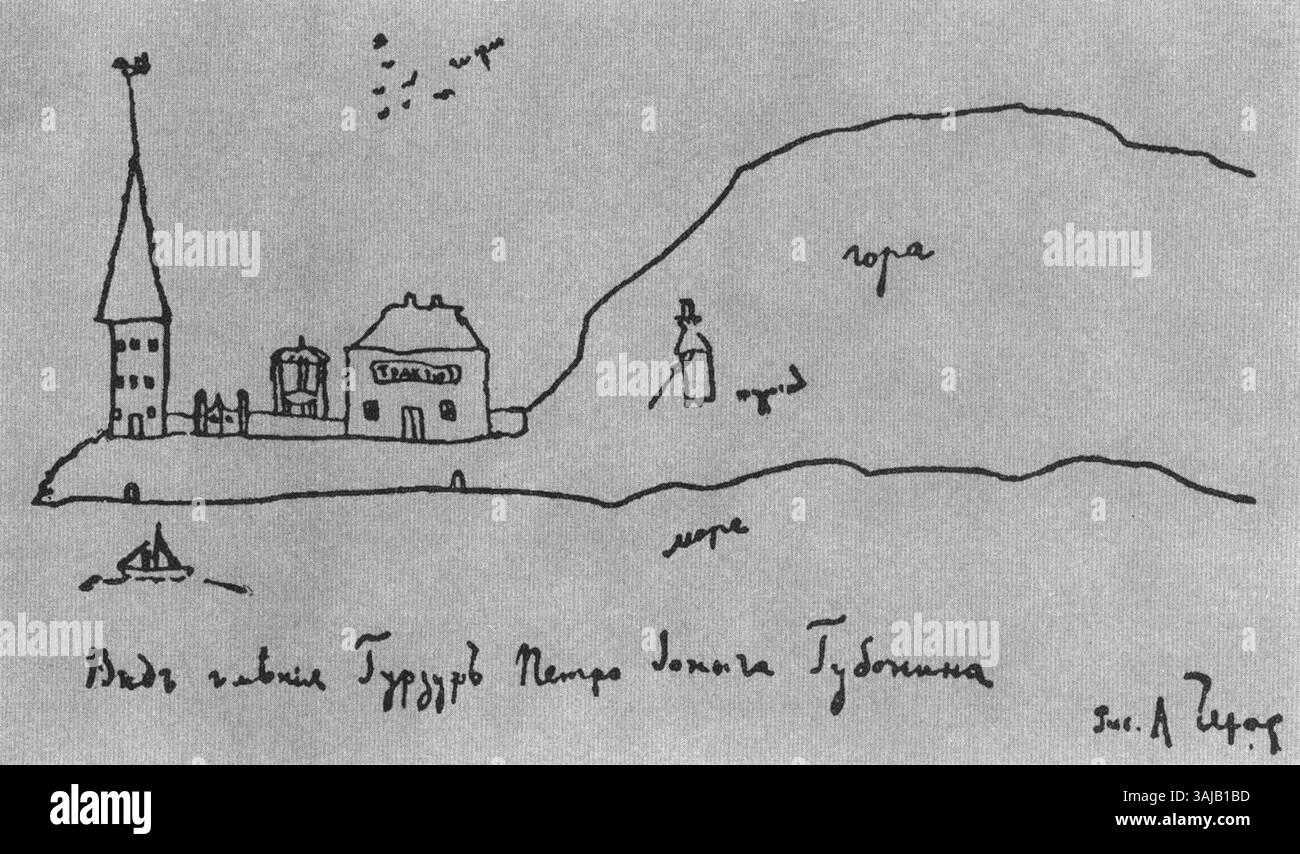 гора
море
Видъ имѣнія Гурзуфъ Петра Іоныча Губонина
рис. А Чехов
alamy
alamy
alamy
alamy
alamy
alamy
Image ID: 3AJB1BD
www.alamy.com